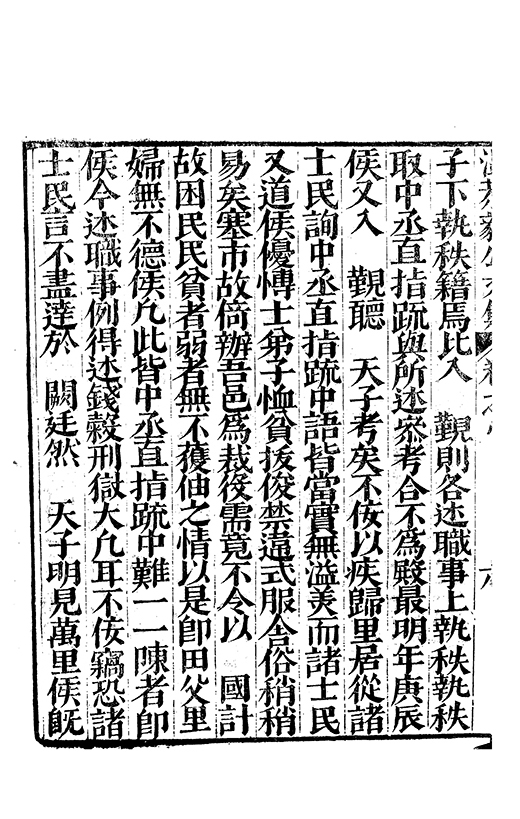 子下執秩籍焉比入　覲則各述職事上執秩執秩
取中丞直指䟽與所述叅考合不爲殿最明年庚辰
侯又入　覲聽　天子考矣不佞以疾歸里居從諸
士民詢中丞直指䟽中語皆當實無溢美而諸士民
又道侯優博士弟子恤貧拔俊禁違式服舍俗稍稍
易矣塞市故倍辦吾邑爲裁役需竟不令以　國計
故困民民貧者弱者無不獲伸之情以是卽田父里
婦無不德侯凢此皆中丞直指䟽中難一一陳者卽
侯今述職事例得述錢榖刑獄大凢耳不佞竊恐諸
士民言不盡達於　闕廷然　天子明見萬里侯旣